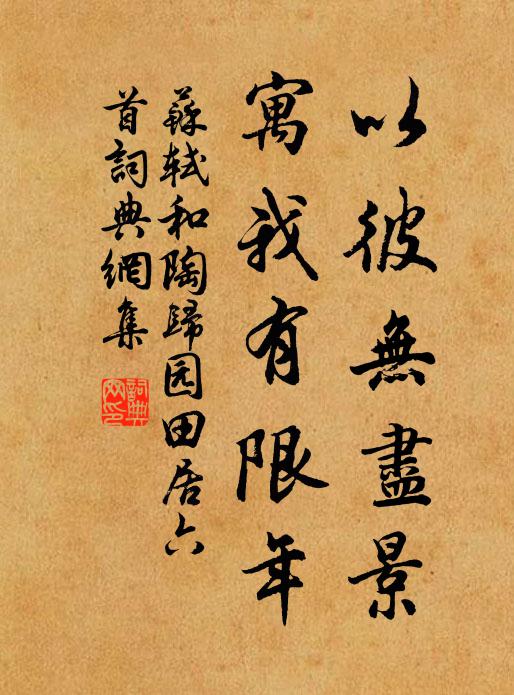 以彼無盡景
寓我有限年
蘇軾和陶歸园田居六
首詞典網集
詞典
網印